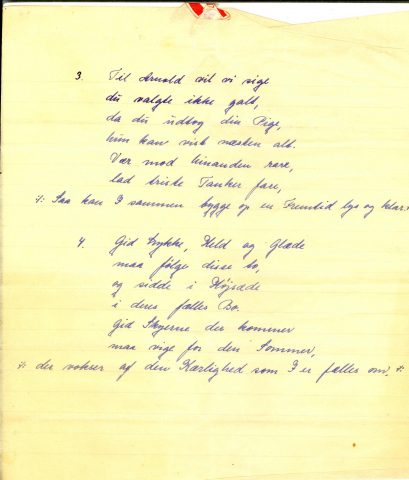 3. Til Arnold vil vi sige
du valgte ikke galt,
da du udtog din Pige,
hun kan vist næsten alt.
Vær mod hinanden rare,
lad triste Tanker fare,
/: Saa kan I sammen bygge op en Fremtid lys og klar :/
4. Gid Lykke, Held og Glæde
maa følge disse to,
og sidde i Højsæde
i deres fælles Bo.
Gid Skyerne der kommer
maa vige for den Sommer,
/: der vokser af den Kærlighed som I er fælles om. :/